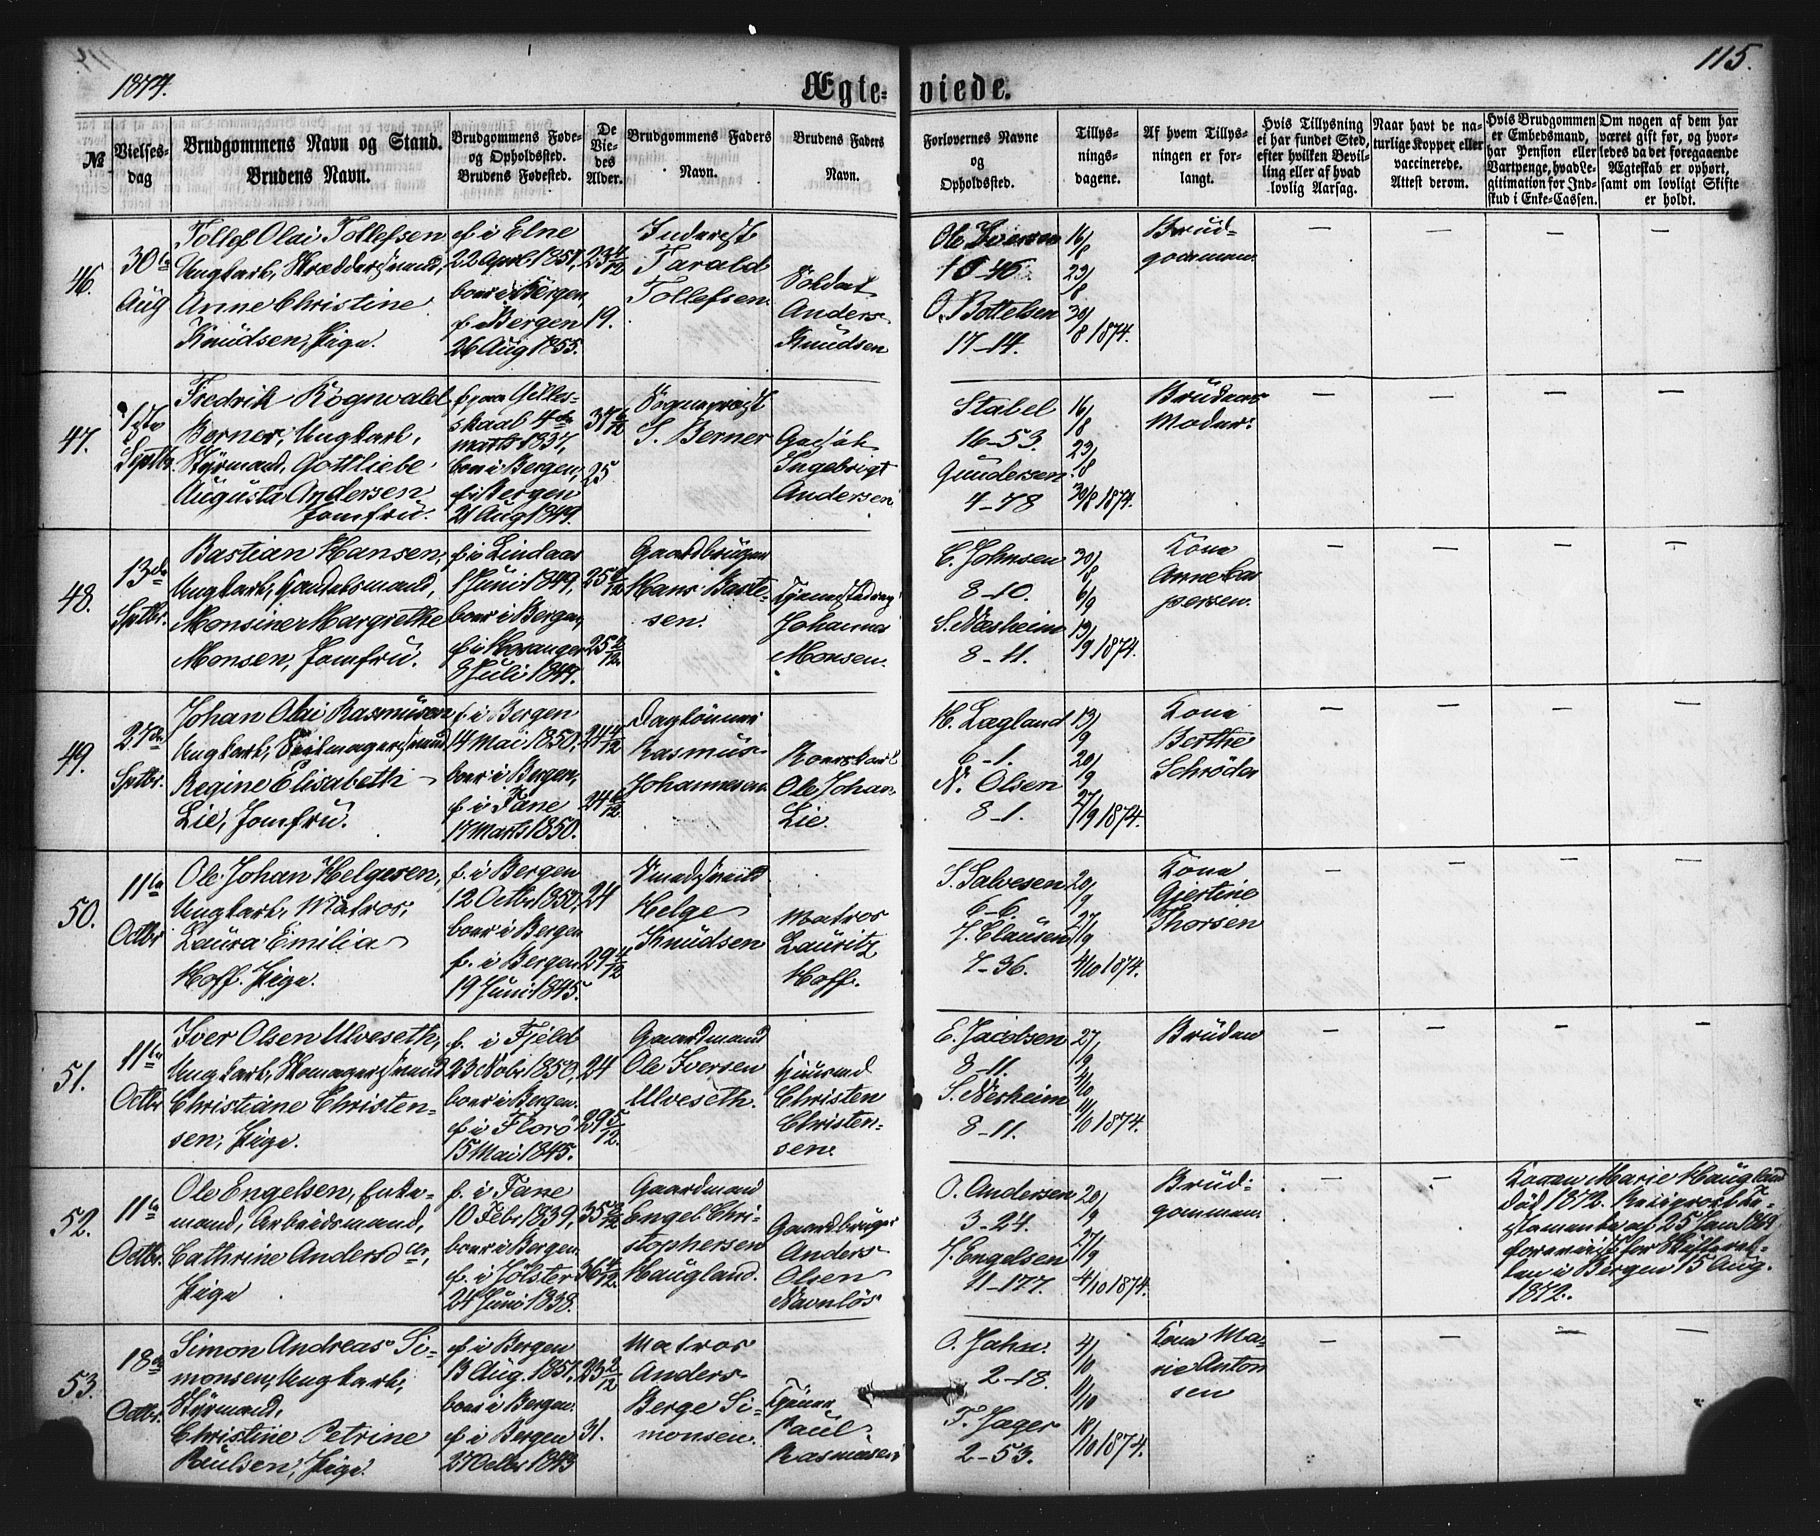 1874.
Ægte-
viede.
115.
№
Vielses-
dag
Brudgommens Navn og Stand.
Brudens Navn.
Brudgommens Føde-
og Opholdssted.
Brudens Fødested.
De
Vie-
des
Alder.
Brudgommens Faders
Navn.
Brudens Faders
Navn.
Forlovernes Navne
og
Opholdssted.
Tillys-
nings-
dagene.
Af hvem Tillys-
ningen er for-
langt.
Hvis Tillysning
ei har fundet Sted,
efter hvilken Bevil-
ling eller af hvad
lovlig Aarsag.
Naar havt de na-
turlige Kopper eller
vaccinerede.
Attest derom.
Hvis Brudgommen
er Embedsmand,
har Pension eller
Vartpenge, hvad Le-
gitimation for Ind-
skud i Enke-Cassen.
Om nogen af dem har
været gift før, og hvor-
ledes da det foregaaende
Ægteskab er ophørt,
samt om lovligt Skifte
er holdt.
46.
30te
Aug
Tollef Olai Tollefsen
Ungkarl, Skræddersvend,
Anne Christine
Knudsen, Pige.
f. i Elne
22 April 1851,
boer i Bergen,
f. i Bergen
26 Aug 1855.
23 4/12
19.
Inderest
Tarald
Tollefsen.
Soldat
Anders
Knudsen
Ole Iversen
10-46
O. Bottelsen
17-14.
16/8
23/8
30/8 1874.
Brud-
gommen
47.
Septbr.
Fredrik Rognvald
Berner, Ungkarl,
Styrmand, Gottliebe
Augusta Andersen
Jomfru.
f. paa Gilles-
skaal 4de
marts 1837,
boer i Bergen,
f. i Bergen
21 Aug 1849.
37 6/12
25
Sogneprest
S. Berner
Ingebrigt
Andersen
Stabel
16-53.
Gundersen
4-78
16/8
23/8
30/8 1874.
Brudens
Moder.
48.
13de
Sptbr.
Bastian Hansen,
Ungkarl, Handelsmand,
Monsine Margrethe
Monsen, Jomfru.
f. i Lindaas
1 Juni 1849,
boer i Bergen,
f. i Horanger
8 Juli 1849.
25 3/12
25 2/12.
Gaardbruger
Hans Baste-
sen.
Johannes
Monsen.
C. Johnsen
8-10.
S. Næsheim
8-11.
30/8
6/9
13/9 1874.
Kone
Anne Cas
persen.
49.
27de
Sptbr.
Johan Olai Rasmusen
Ungkarl, Seilmagersvend
Regine Elisabeth
Lie, Jomfru.
f. i Bergen
14 Mai 1850.
boer i Bergen,
f. i Fane
17 Marts 1850.
24 4/12
24 6/12.
Daglønner
Rasmus
Johannesen
Ole Johan
Lie.
H. Lægland
6-1.
N. Olsen
8-1.
13/9
20/9
27/9 1874.
Kone
Berthe
Schrøder
50.
11te
Octbr
Ole Johan Helgesen,
Ungkarl, Matros,
Laura Emilia
Hoff, Pige.
f. i Bergen
12 Octbr 1850,
boer i Bergen
f. i Bergen
19 Juni 1845.
24
29 4/12
Smedsvend
Helge
Knudsen
Matros
Lauritz
Hoff.
S. Salvesen
6-6.
J. Clausen
7-36.
20/9
27/9
4/10 1874.
Kone
Gjertine
Thorsen
51.
11te
Octbr
Iver Olsen Ulveseth,
Ungkarl, Skomagersvend
Christiane Christen-
sen, Pige.
f. i Fjeld
23 Nobr 1850,
boer i Bergen.
f. i Florø
15 Mai 1845.
24
29 5/12.
Gaardmand
Ole Iversen
Ulveseth.
Huusmd
Christen
Christen-
sen.
E. Jacobsen
8-11.
S. Næsheim
8-11.
27/9
4/10
11/10 1874.
Bruden
52.
11te
Octbr.
Ole Engelsen, Enke-
mand, Arbeidsmand,
Cathrine Andersdter,
Pige
f. i Fane
10 Febr 1839,
boer i Bergen.
f. i Jølster
24 Juni 1838.
35 8/12
36 4/12
Gaardmand
Engel Chri-
stophersen
Haugland.
Gaardbruger
Anders
Olsen
Navnløs
O. Andersen
3-24.
J. Engelsen
21-177.
20/9
27/9
4/10 1874.
Brud-
gommen
Konen Marie Haugland
død 1872. Reciprokt Te-
stamente af 25 Jan 1869
foreviist for Skifteret-
ten i Bergen 15 Aug.
1872.
53.
18de
Octbr.
Simon Andreas Si-
monsen, Ungkarl,
Styrmand,
Christine Petrine
Paulsen, Pige.
f. i Bergen
13 Aug. 1851.
boer i Bergen.
f. i Bergen
27 Octbr 1843
23 2/12
31.
Matros
Anders
Berge Si-
monsen.
Paul
Rasmusen
O. Jahn.
2-18.
T. Jager
2-53.
4/10
11/10
18/10 1874.
Kone Ma-
rie Anton
sen